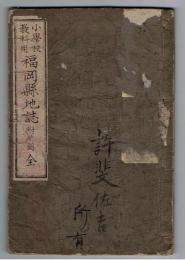 小學校
教科用
福岡縣地誌 附略圖 全
佐吉
所有